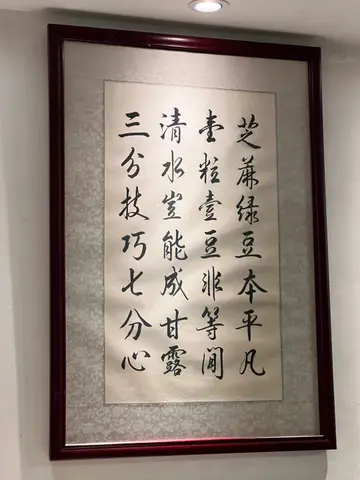 芝蔴绿豆本平凡
壹粒壹豆非等闲
清水岂能成甘露
三分技巧七分心